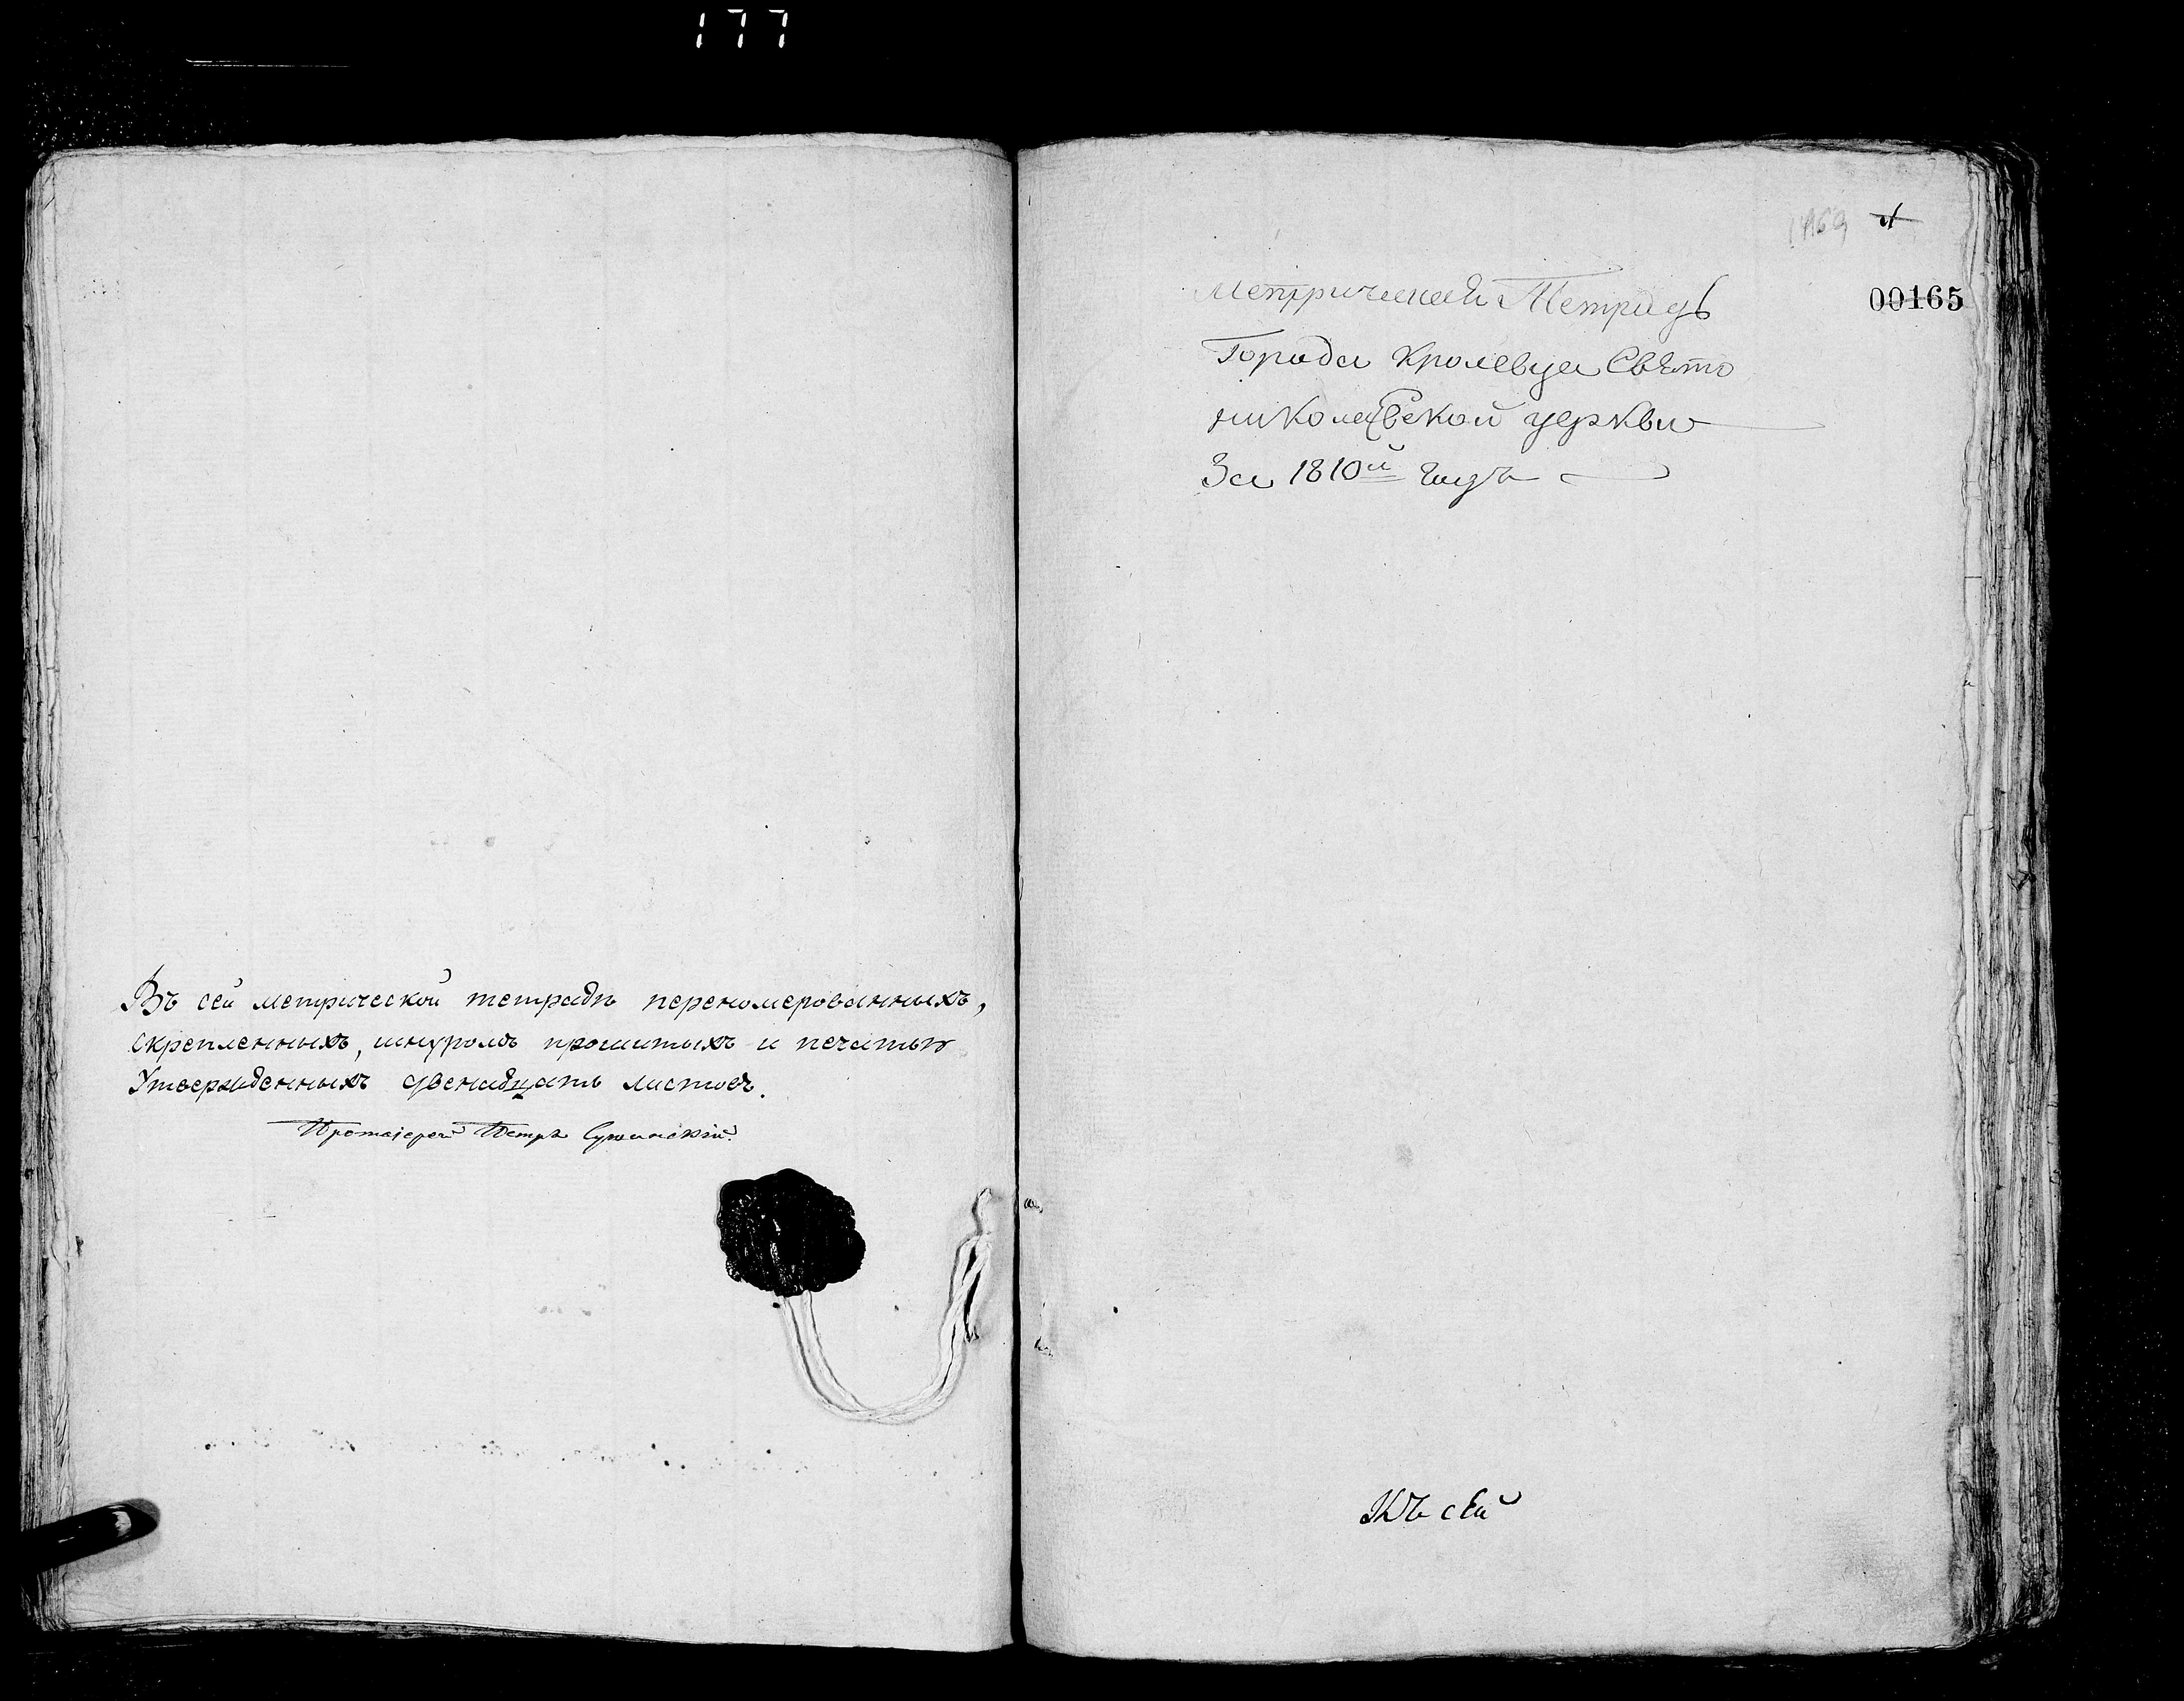 177
Въ сей метрической тетради переномерованныхъ,
скрепленныхъ, шнуромъ прошитыхъ и печатью
Утвержденныхъ двенадцать листовъ.
Протоіерей Петръ
1
00165
Метрическая Тетрадь
Города Кролевца Свято
николаевской церкви
За 1810й годъ
Къ сей